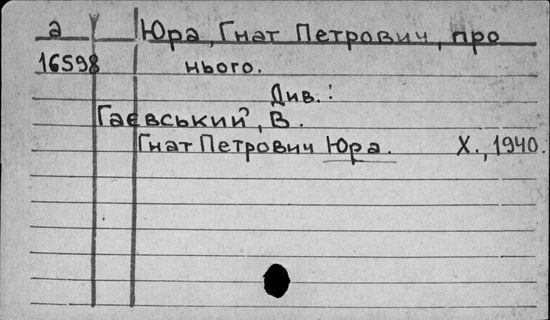 а Юра, Гнат Петрович, про
16598 нього.
Див.:
Гаєвський, В.
Гнат Петрович Юра. Х., 1940.